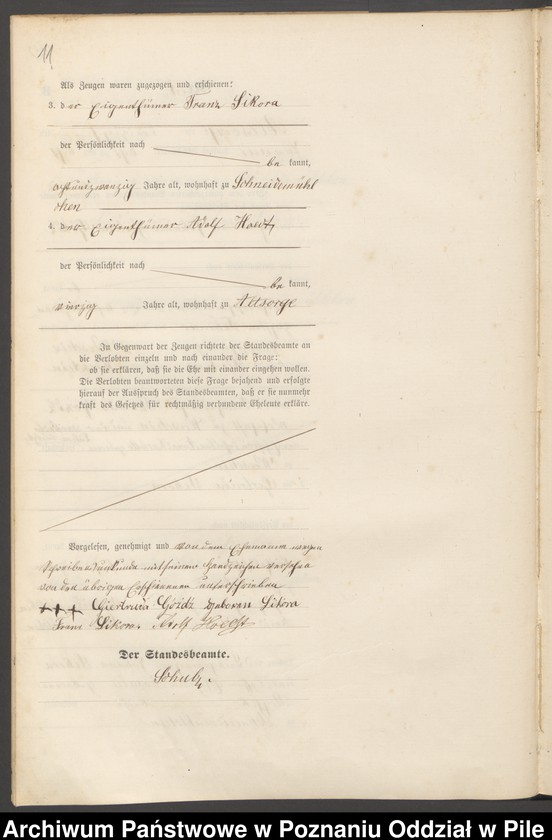 11
Als Zeugen waren zugezogen und erschienen:
3. der Eigenthümer Franz Sikora
der Persönlichkeit nach
be kannt,
achtundzwanzig Jahre alt, wohnhaft zu Schneidemühl
chen
4. der Eigenthümer Adolf Hoeft
der Persönlichkeit nach
be kannt,
vierzig Jahre alt, wohnhaft zu Altsorge
In Gegenwart der Zeugen richtete der Standesbeamte an
die Verlobten einzeln und nach einander die Frage:
ob sie erklären, daß sie die Ehe mit einander eingehen wollen.
Die Verlobten beantworteten diese Frage bejahend und erfolgte
hierauf der Ausspruch des Standesbeamten, daß er sie nunmehr
kraft des Gesetzes für rechtmäßig verbundene Eheleute erkläre.
Vorgelesen, genehmigt und von dem Ehemanne wegen
Schreibensunkunde mit seinem Handzeichen versehen
von den übrigen Erschienenen unterschrieben
+++ Giertruda Góźdź geboren Sikora
Franz Sikora. Adolf Hoeft
Der Standesbeamte.
Schulz.
Archiwum Państwowe w Poznaniu Oddział w Pile